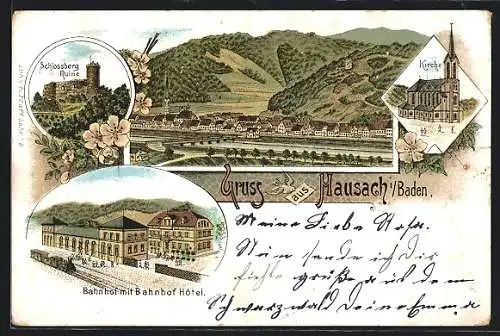 Schlossberg
Ruine
Kirche
Gruss aus Hausach i/Baden.
Bahnhof mit Bahnhof Hôtel.
Meine Liebe Rosa.
Nun sende ich dir
viele grüße aus dem
Schwarzwald Deine Emma